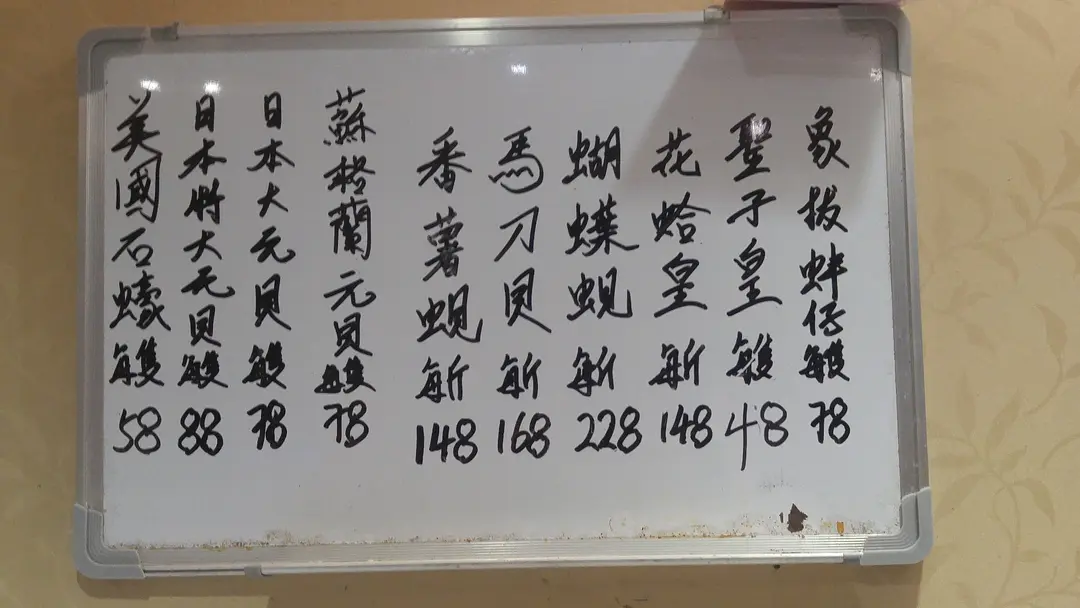 象拔蚌仔每隻78
聖子皇每隻48
花蛤皇每斤148
蝴蝶蜆每斤228
馬刀貝每斤168
番薯蜆每斤148
蘇格蘭元貝每隻78
日本大元貝每隻78
日本特大元貝每隻88
美國石蠔每隻58